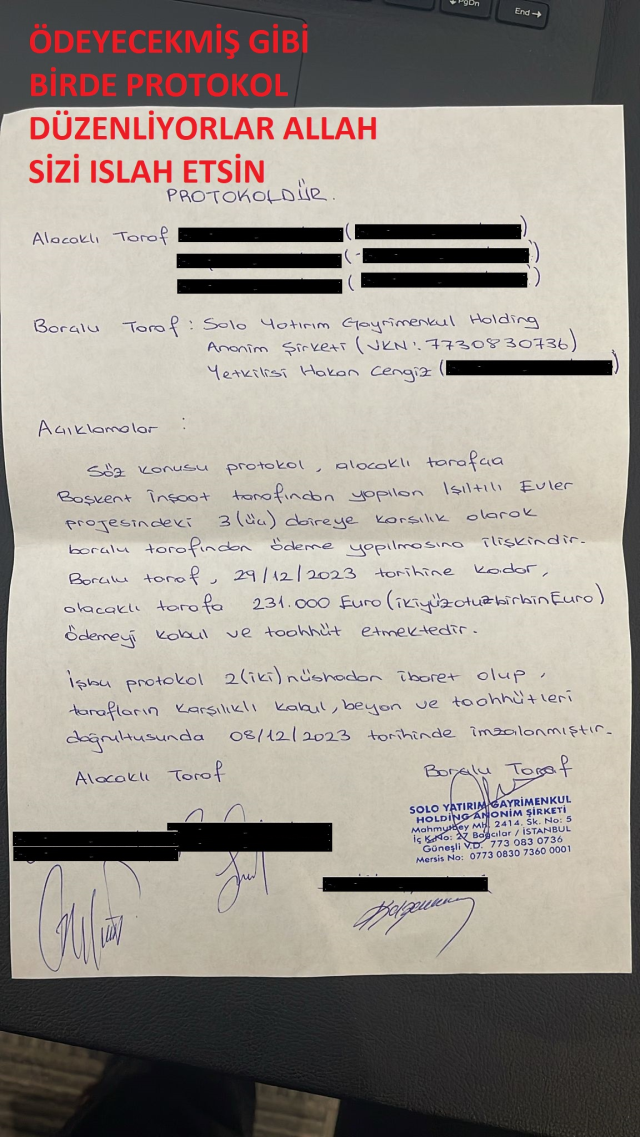 PgDn
End→
ÖDEYECEKMİŞ GİBİ
BİRDE PROTOKOL
DÜZENLİYORLAR ALLAH
SİZİ ISLAH ETSİN
PROTOKOLDÜR.
Alacaklı Taraf
Borçlu Taraf : Solo Yatırım Gayrimenkul Holding
Anonim Şirketi (VKN: 7730830736)
Yetkilisi Hakan Cengiz (
Açıklamalar :
Söz konusu protokol, alacaklı tarafça
Başkent İnşaat tarafından yapılan Işıltılı Evler
projesindeki 3 (üç) daireye karşılık olarak
borçlu tarafından ödeme yapılmasına ilişkindir.
Borçlu taraf, 29/12/2023 tarihine kadar,
alacaklı tarafa 231.000 Euro (ikiyüzotuzbirbin Euro)
ödemeyi kabul ve taahhüt etmektedir.
İşbu protokol 2 (iki) nüshadan ibaret olup,
tarafların karşılıklı kabul, beyan ve taahhütleri
doğrultusunda 08/12/2023 tarihinde imzalanmıştır.
Alacaklı Taraf
Borçlu Taraf
SOLO YATIRIM GAYRİMENKUL
HOLDİNG ANONİM ŞİRKETİ
Mahmutbey Mh. 2414. Sk. No: 5
İç K.No: 27 Bağcılar / İSTANBUL
Güneşli V.D. 773 083 0736
Mersis No: 0773 0830 7360 0001